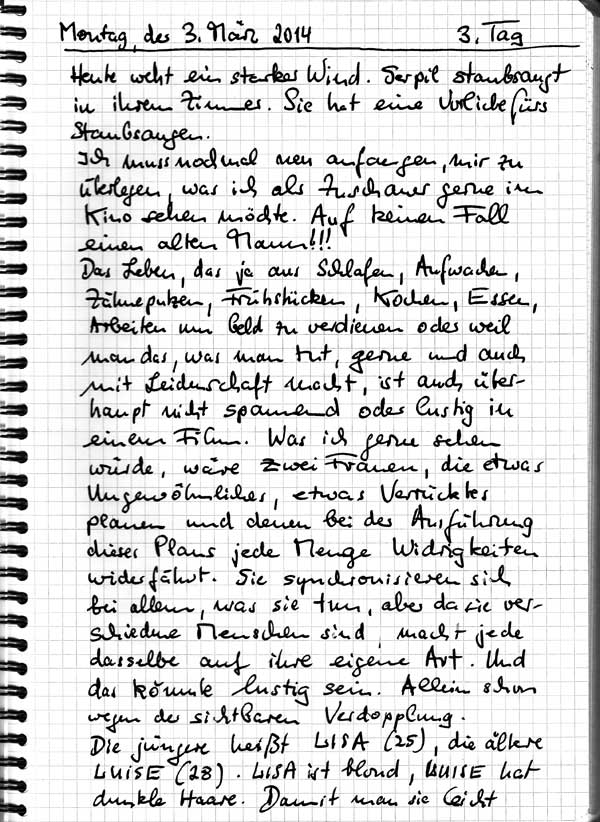 Montag, des 3. März 2014 3. Tag
Heute weht ein starker Wind. Serpil staubsaugt
in ihrem Zimmer. Sie hat eine Vorliebe fürs
Staubsaugen.
Ich muss nochmal neu anfangen, mir zu
überlegen, was ich als Zuschauer gerne im
Kino sehen möchte. Auf keinen Fall
einen alten Mann!!!
Das Leben, das ja aus Schlafen, Aufwachen,
Zähneputzen, Frühstücken, Kochen, Essen,
Arbeiten um Geld zu verdienen oder weil
man das, was man tut, gerne und auch
mit Leidenschaft macht, ist auch über-
haupt nicht spannend oder lustig in
einem Film. Was ich gerne sehen
würde, wäre zwei Frauen, die etwas
Ungewöhnliches, etwas Verrücktes
planen und denen bei der Ausführung
dieses Plans jede Menge Widrigkeiten
widerfährt. Sie synchronisieren sich
bei allem, was sie tun, aber da sie ver-
schiedene Menschen sind, macht jede
dasselbe auf ihre eigene Art. Und
das könnte lustig sein. Allein schon
wegen der sichtbaren Verdopplung.
Die jüngere heißt LISA (25), die ältere
LUISE (28). LISA ist blond, LUISE hat
dunkle Haare. Damit man sie leicht